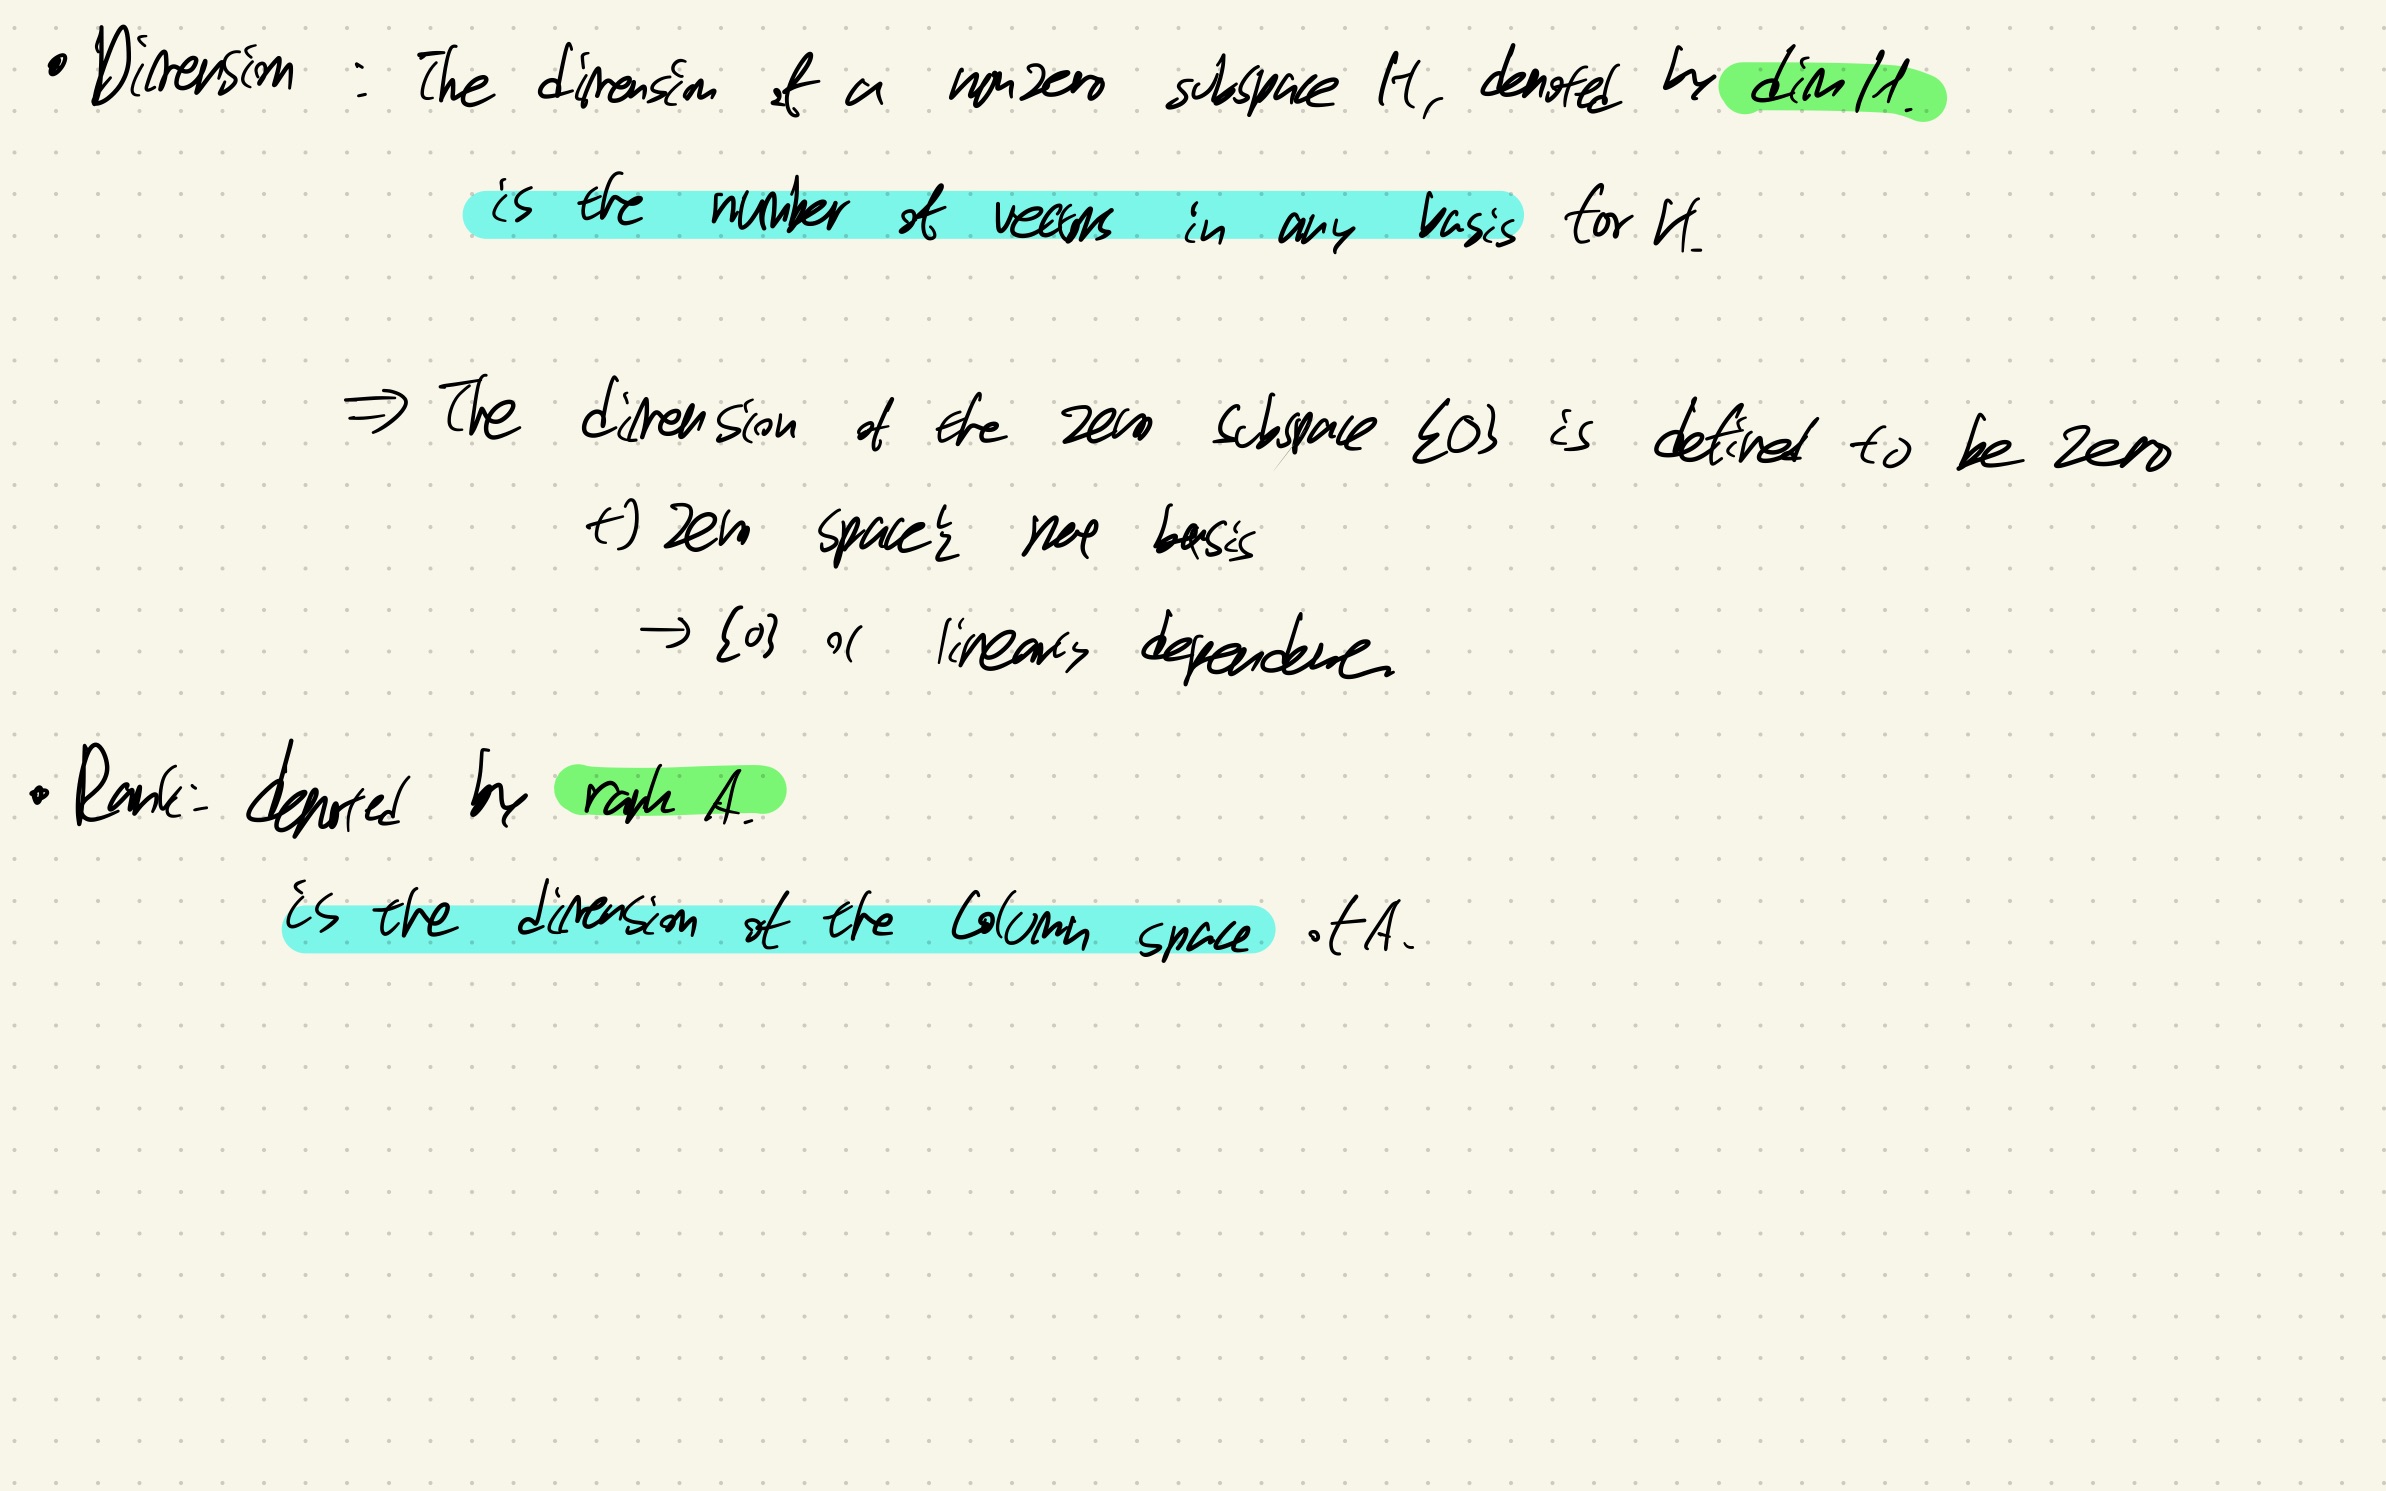 • Dimension : The dimension of a nonzero subspace H, denoted by dim H.
is the number of vectors in any basis for H.
⇒ The dimension of the zero subspace {0} is defined to be zero
+) zero space는 basis
→ {0} 이 linearly dependence
• Rank: denoted by rank A.
is the dimension of the Column space of A.